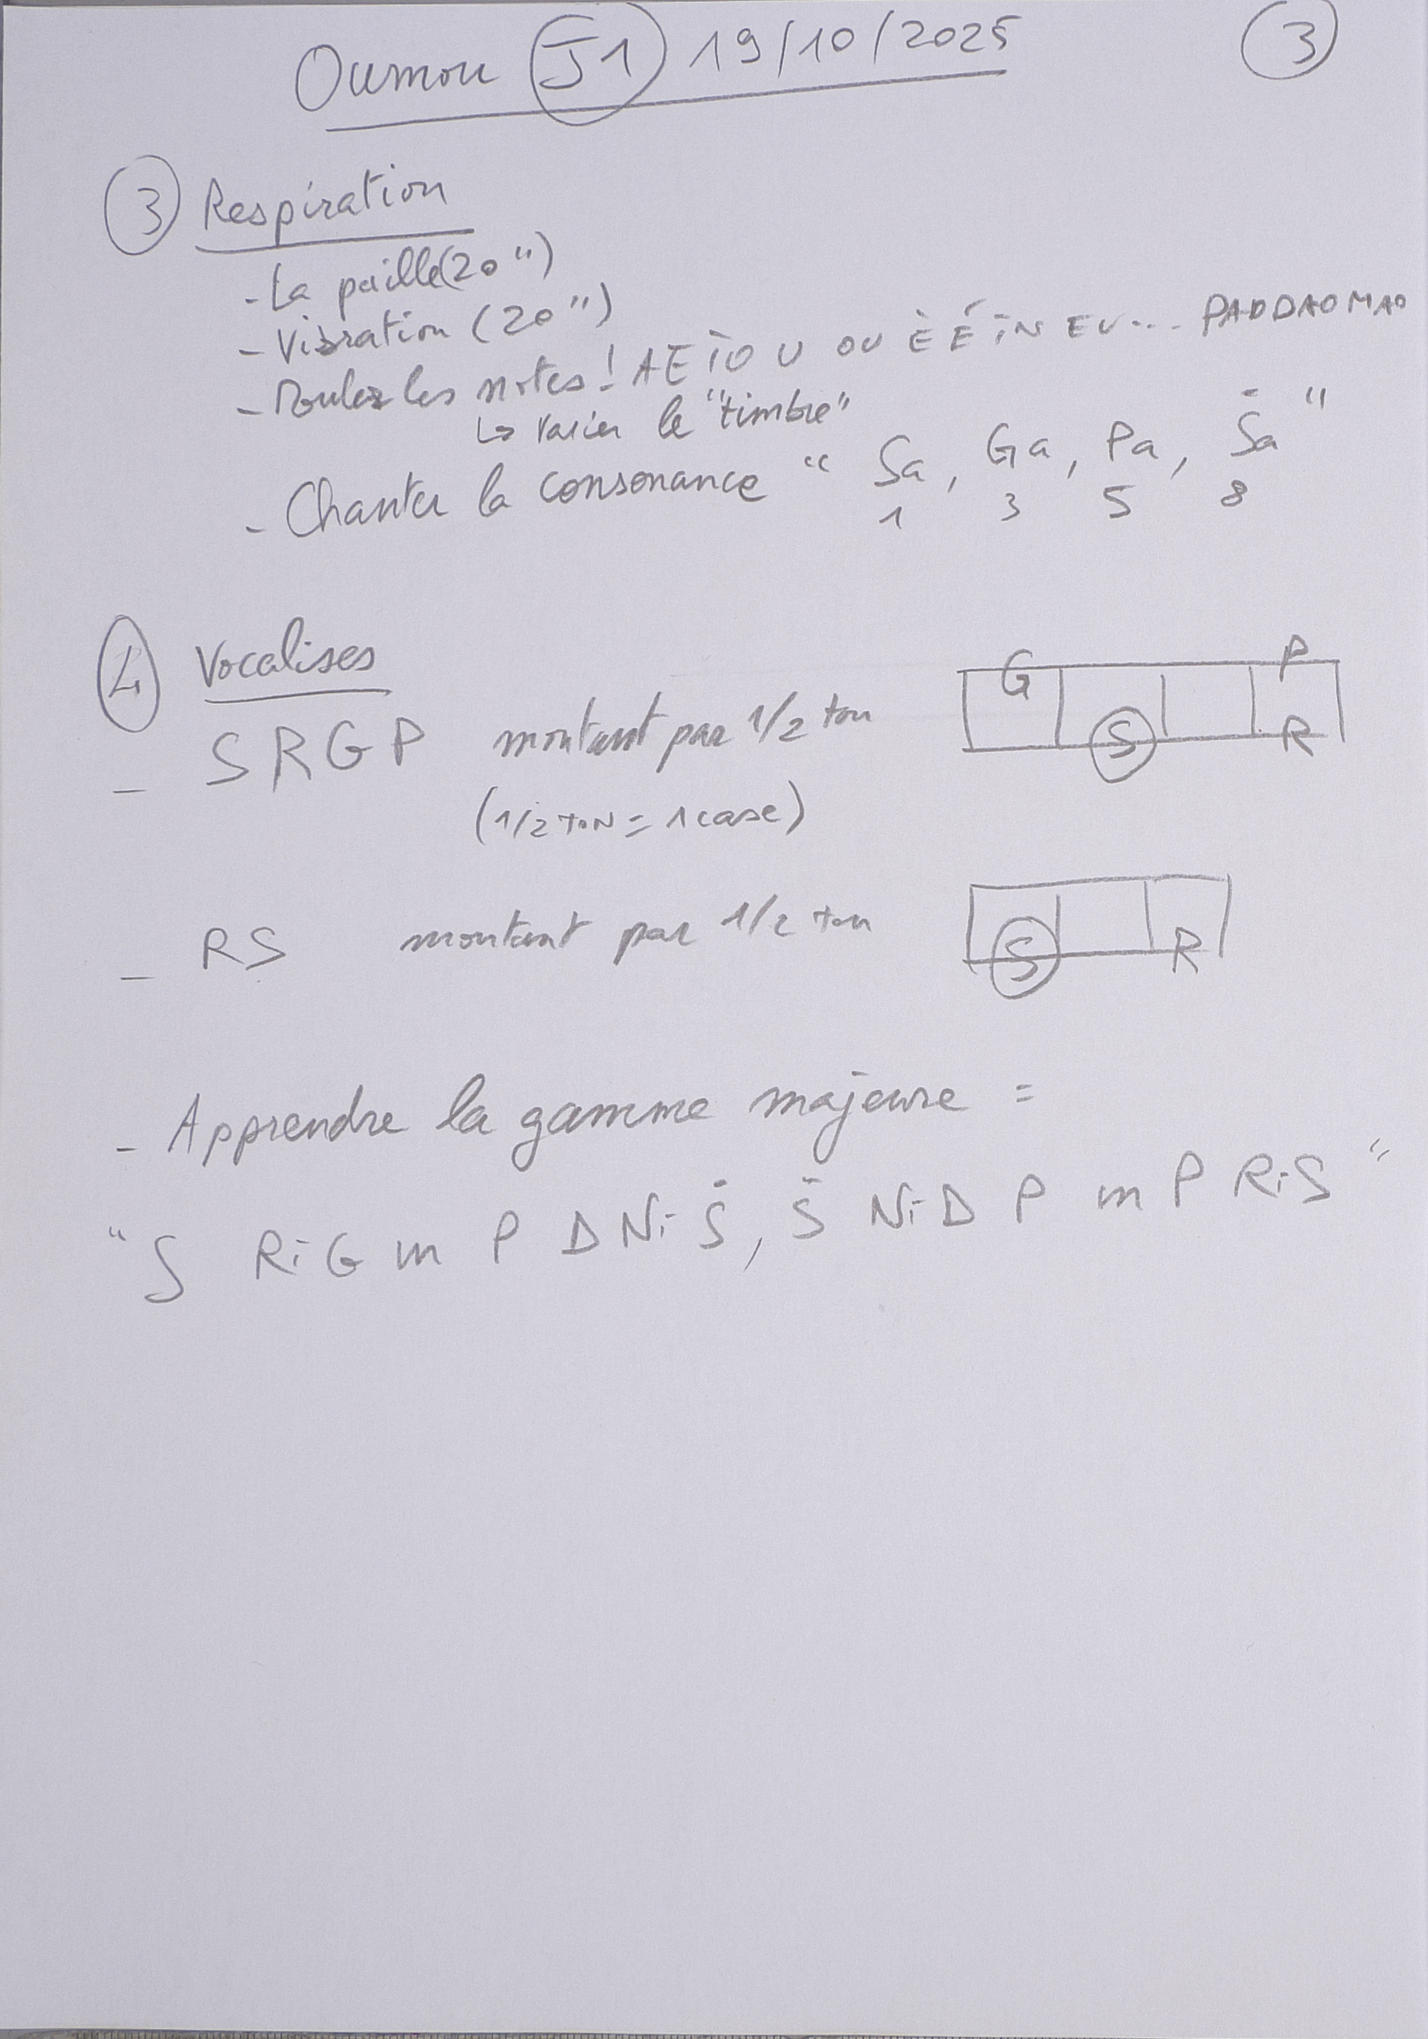 Oumou J1 19/10/2025
3
3 Respiration
- La paille (20")
- Vibration (20")
- Roulez les notes! A E I O U OU È É IN EU... PAODAOMAO
↳ Varier le "timbre"
- Chanter la consonance " Sa, Ga, Pa, Ṡa "
1 3 5 8
4 Vocalises
- S R G P montant par 1/2 ton
(1/2 TON = 1 case)
G P
S R
- RS montant par 1/2 ton
S R
- Apprendre la gamme majeure =
" S Ri G m P D Ni Ṡ, Ṡ Ni D P m P Ri S "